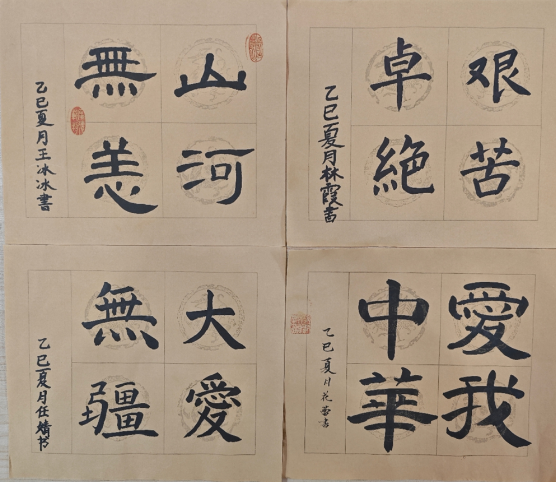 山河
無恙
乙巳夏月王冰冰書
艰苦
卓絶
乙巳夏月林霞書
大愛
無疆
乙巳夏月任婧书
愛我
中華
乙巳夏月花蕾书